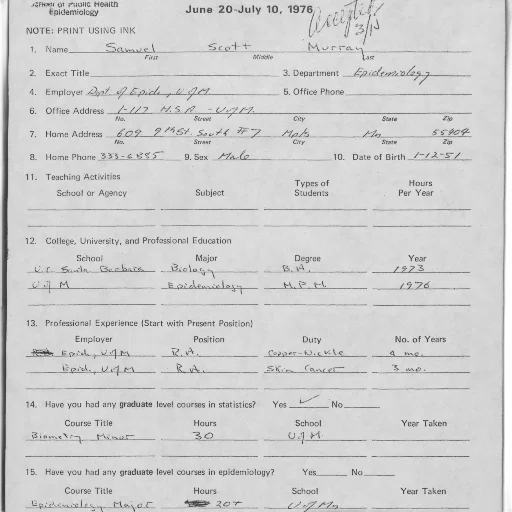 School of Public Health
Epidemiology
June 20-July 10, 1976
Accepted
3/15
NOTE: PRINT USING INK
1. Name Samuel Scott Murray
First Middle Last
2. Exact Title 3. Department Epidemiology
4. Employer Dept of Epid., U of M 5. Office Phone
6. Office Address 1-117 H.S.A. - U of M.
No. Street City State Zip
7. Home Address 609 9th St. South #7 Mpls Mn 55404
No. Street City State Zip
8. Home Phone 333-6855 9. Sex Male 10. Date of Birth 1-12-51
11. Teaching Activities
School or Agency Subject Types of Students Hours Per Year
12. College, University, and Professional Education
School Major Degree Year
U.C. Santa Barbara Biology B.A. 1973
U of M Epidemiology M.P.H. 1976
13. Professional Experience (Start with Present Position)
Employer Position Duty No. of Years
Epid., U of M R.A. Copper-Nickle 9 mo.
Epid., U of M R.A. Skin Cancer 3 mo.
14. Have you had any graduate level courses in statistics? Yes ✓ No
Course Title Hours School Year Taken
Biometry Minor 30 U of M
15. Have you had any graduate level courses in epidemiology? Yes No
Course Title Hours School Year Taken
Epidemiology Major 20+ U of Mn